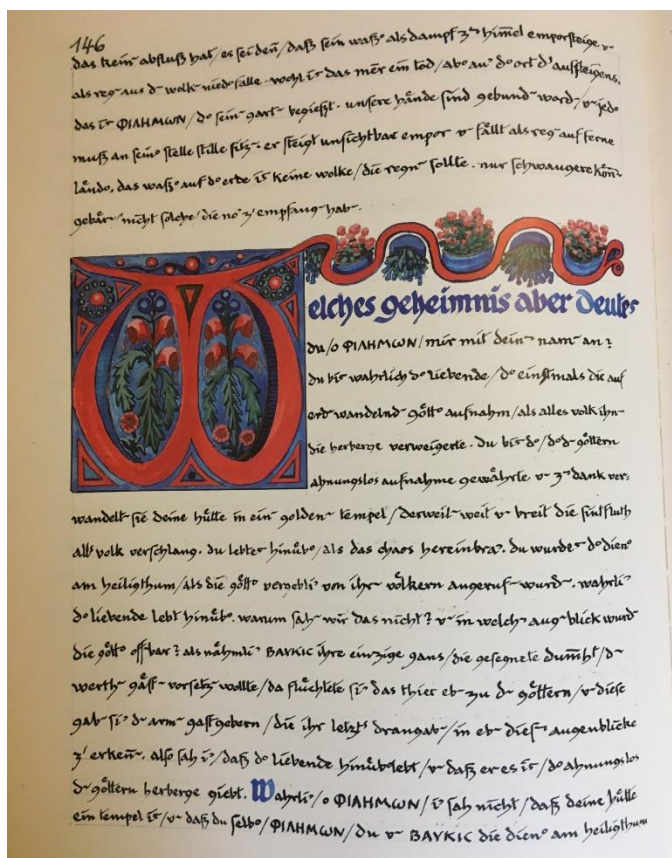 146
das kein abfluß hat / es sei den̄ / daß sein waßᵒ als dampf z⁊ him̄el emporsteige v
als reg⁓ aus d⁓ wolk⁓ niedᵒfalle. wohl iſ das mēr ein tod / abᵒ au⁾ dᵒ ort d' aufsteigens.
das iſ ΦΙΛΗΜΩΝ / dᵒ sein⁓ gart⁓ begießt. unsere hände sind gebund⁓ word⁓ / v⁓ jedᵒ
muß an seinᵒ stelle stille sitz⁓. er steigt unsichtbar empor v⁓ fällt als reg⁓ auf ferne
ländᵒ. das waßᵒ auf dᵒ erde iſ keine wolke / die regn⁓ sollte. nur schwangere kön̄⁓
gebär⁓ / nicht solche / die no⁾ z' empfang⁓ hab⁓.
Welches geheimnis aber deutes
du / o ΦΙΛΗΜΩΝ / mir mit dein⁓ nam⁓ an?
du biſ wahrlich dᵒ liebende / dᵒ einstmals die auf
erd⁓ wandelnd⁓ göttᵒ aufnahm / als alles volk ihn⁓
die herberge verweigerte. du biſ dᵒ / dᵒ d⁓ göttern
ahnungslos aufnahme gewährte v⁓ z⁊ dank ver=
wandelt⁓ sie deine hütte in ein⁓ golden⁓ tempel / derweil⁓ weit v⁓ breit die sintfluth
all' volk verschlang. du lebtes hinübᵒ / als das chaos hereinbra⁾. du wurdes dᵒ dienᵒ
am heiligthum / als die göttᵒ vergebli⁾ von ihr⁓ völkern angeruf⁓ wurd⁓. wahrli⁾
dᵒ liebende lebt hinübᵒ. warum sah⁓ wir das nicht? v⁓ in welch⁓ aug⁓blick wurd⁓
die göttᵒ off⁓bar? als nähmli⁾ ΒΑΥΚΙC ihre einzige gans / die gesegnete dum̄ht / d⁓
werth⁓ gäst⁓ vorsetz⁓ wollte / da flüchtete si⁾ das thier eb⁓ zu d⁓ göttern / v⁓ diese
gab⁓ si⁾ d⁓ arm⁓ gastgebern / die ihr letzt' drangab⁓ / in eb⁓ dies⁓ augenblicke
z' erken̄⁓. also sah i⁾ / daß dᵒ liebende hinübᵒlebt / v⁓ daß er es iſ / dᵒ ahnungslos
d⁓ göttern herberge giebt. Wahrli⁾ / o ΦΙΛΗΜΩΝ / i⁾ sah nicht / daß deine hütte
ein tempel iſ / v⁓ daß du selbᵒ / ΦΙΛΗΜΩΝ / du v⁓ ΒΑΥΚΙC die dienᵒ am heiligthum